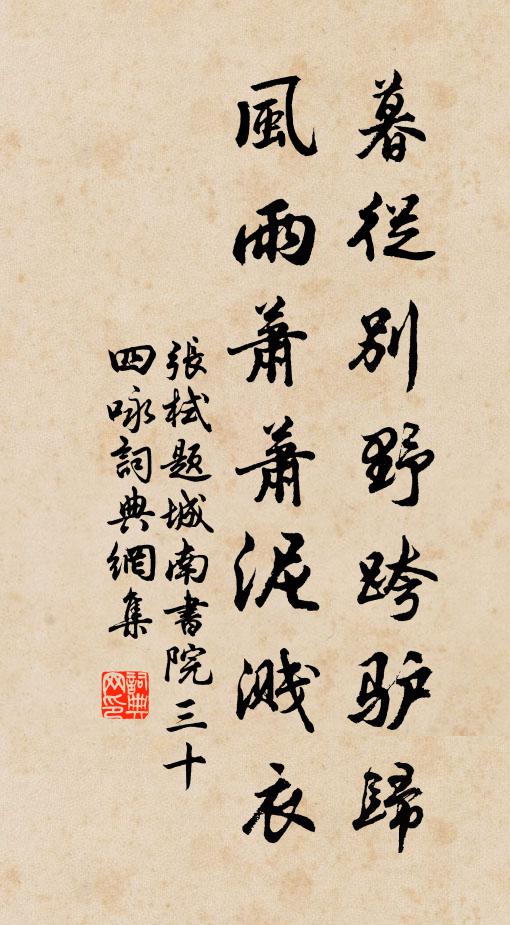 暮從別野跨驴歸
風雨蕭蕭泥濺衣
張栻题城南書院三十
四咏詞典網集
詞典网印